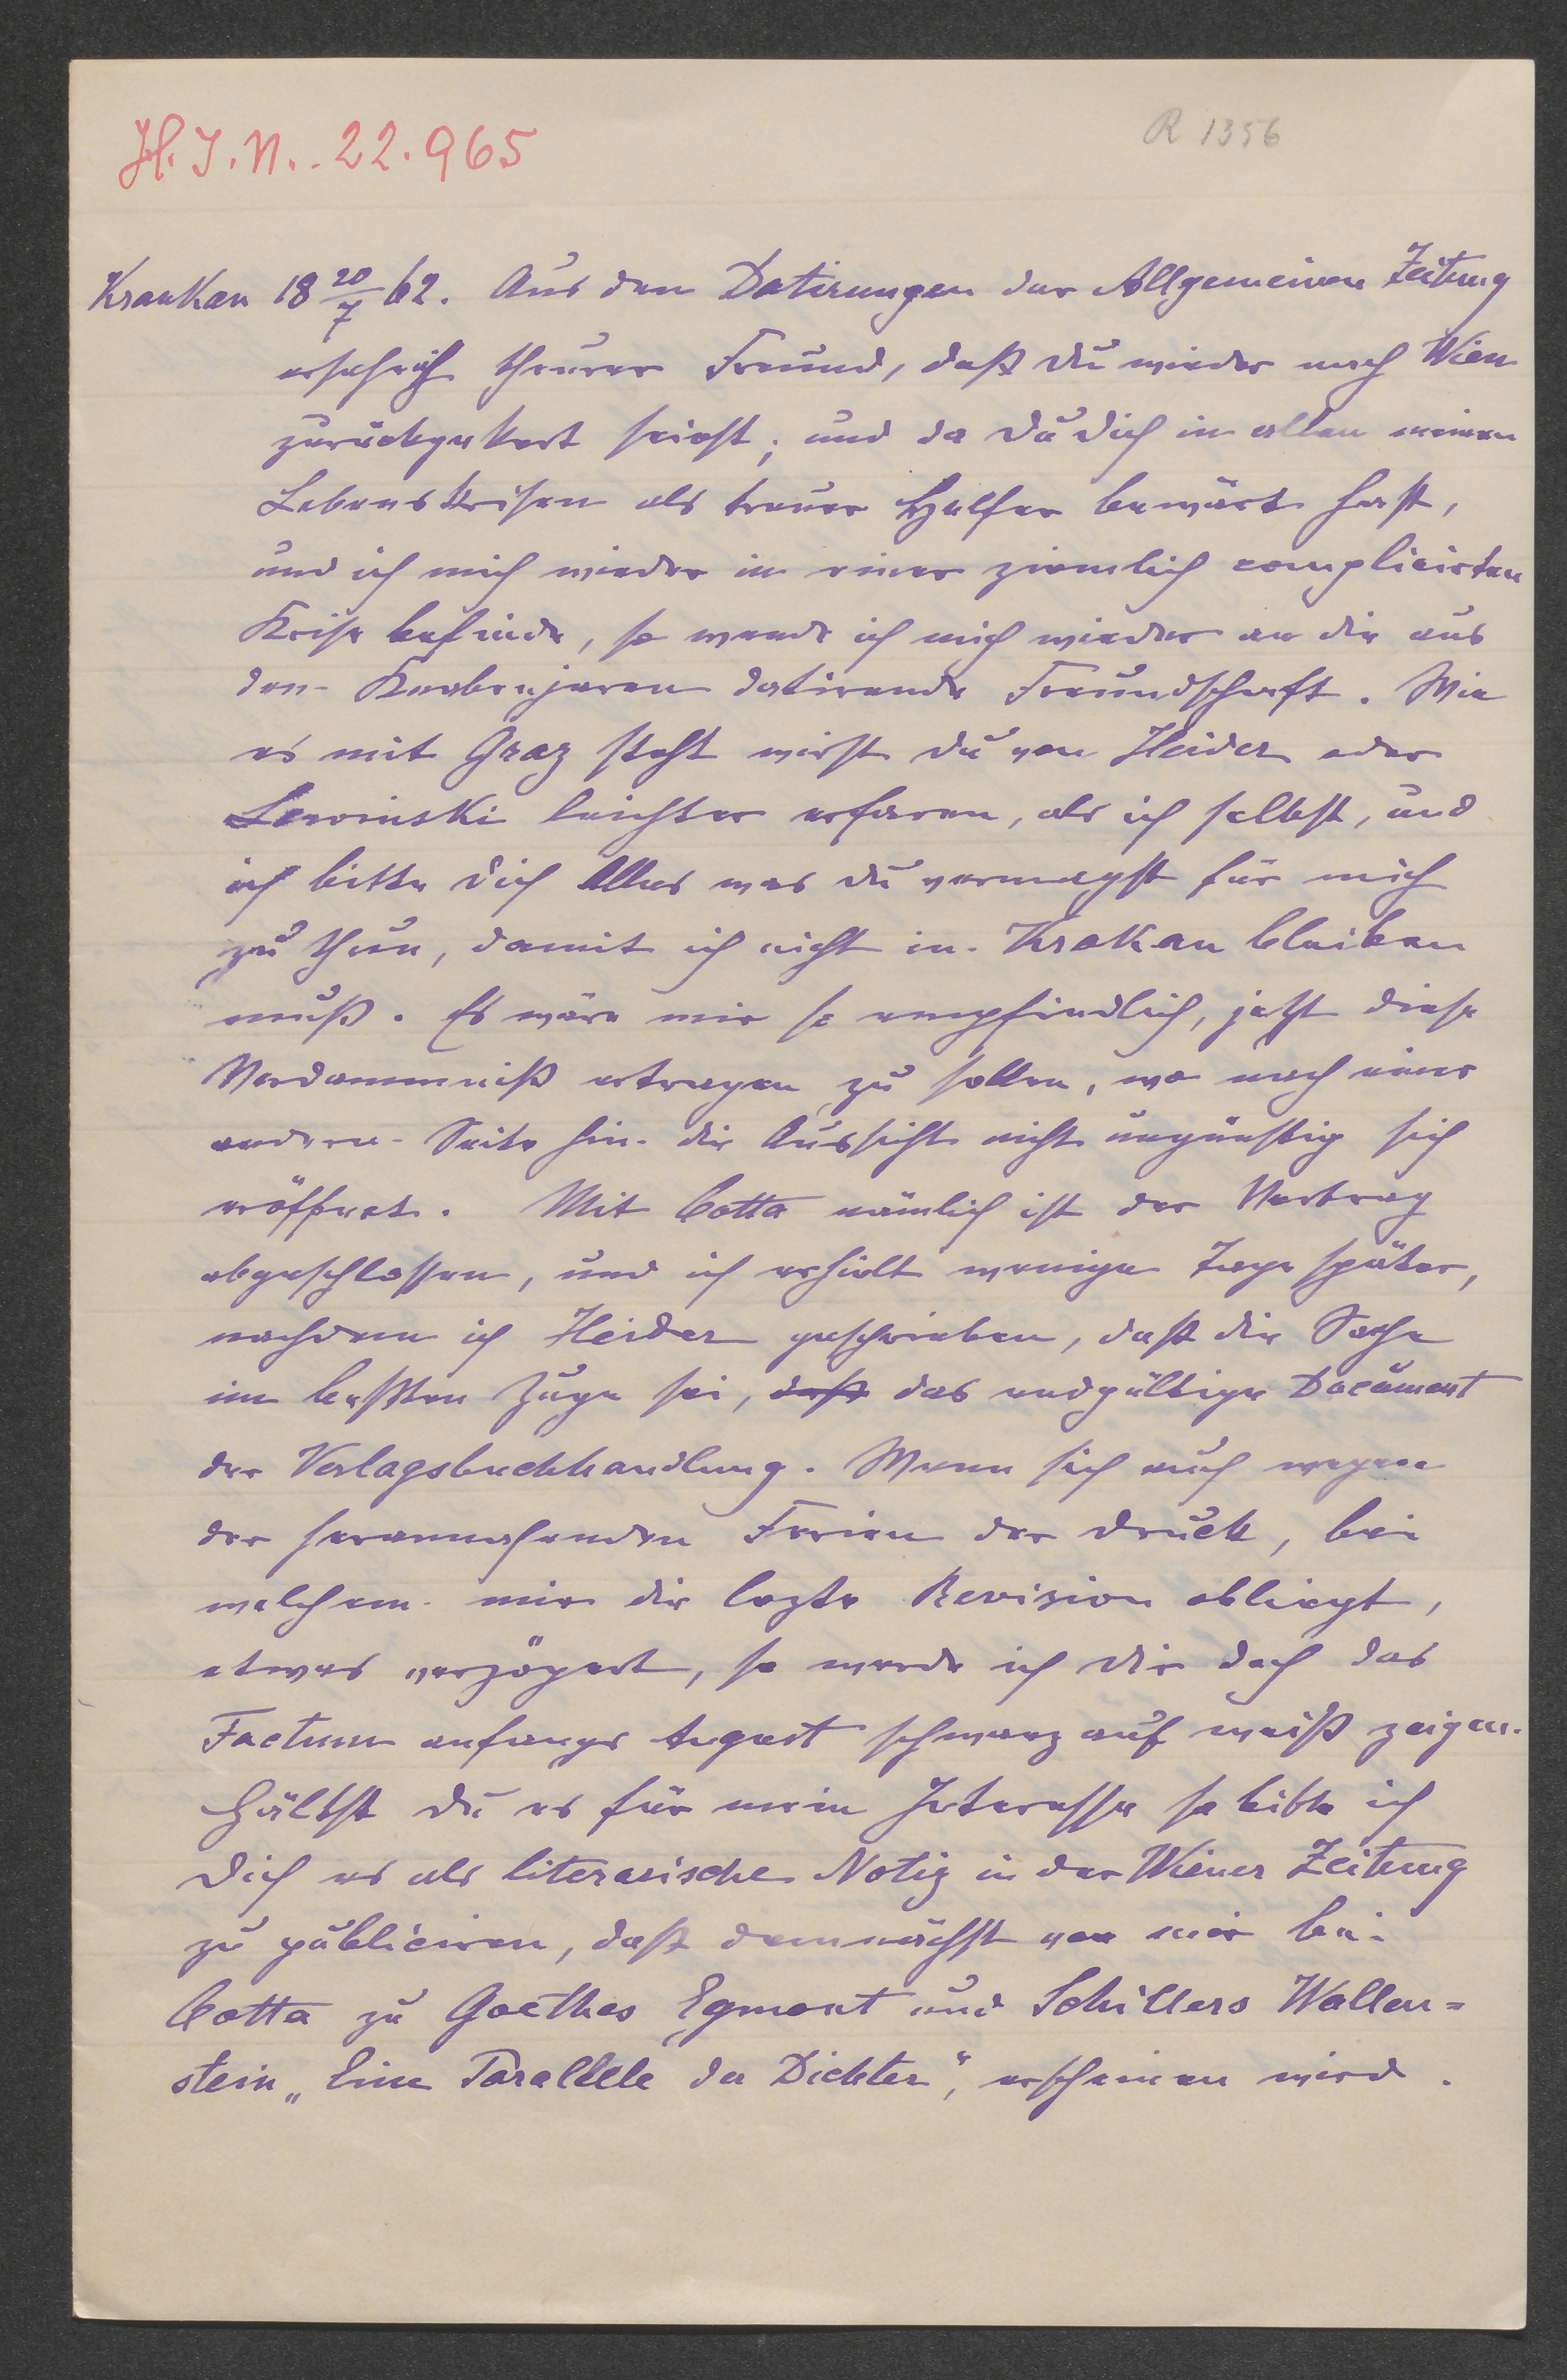 H. I. N. 22.965
R 1356
Kraukau 18 20/7 62. Aus den Datirungen der Allgemeinen Zeitung
erseh ich theurer Freund, daß du wieder nach Wien
zurückgekert seiest; und da du dich in allen meinen
Lebenskrisen als treuer Helfer bewärt hast,
und ich mich wieder in einer ziemlich complicirten
Krise befinde, so wende ich mich wieder an die aus
den Knabenjaren datirende Freundschaft. Wie
es mit Graz steht wirst du von Heider oder
Lewinski leichter erfaren, als ich selbst, und
ich bitte dich Alles was du vermagst für mich
zu thun, damit ich nicht in Krakau bleiben
muß. Es wäre mir so empfindlich, jetzt diese
Verdammniß ertragen zu sollen, wo nach einer
andern Seite hin die Aussicht nicht ungünstig sich
eröffnet. Mit Cotta nämlich ist der Vertrag
abgeschlossen, und ich erhielt wenige Tage später,
nachdem ich Heider geschrieben, daß die Sache
im beßten Zuge sei, daß das endgültige Document
der Verlagsbuchhandlung. Wenn sich auch wegen
der herannahenden Ferien der Druck, bei
welchem mir die lezte Revision obliegt,
etwas verzögert, so werde ich dir doch das
Factum anfangs August schwarz auf weiß zeigen.
Hältst du es für mein Interesse so bitte ich
dich es als literarische Notiz in der Wiener Zeitung
zu publiciren, daß demnächst von mir bei
Cotta zu Goethes Egmont und Schillers Wallen=
stein „Eine Parallele der Dichter“, erscheinen wird.